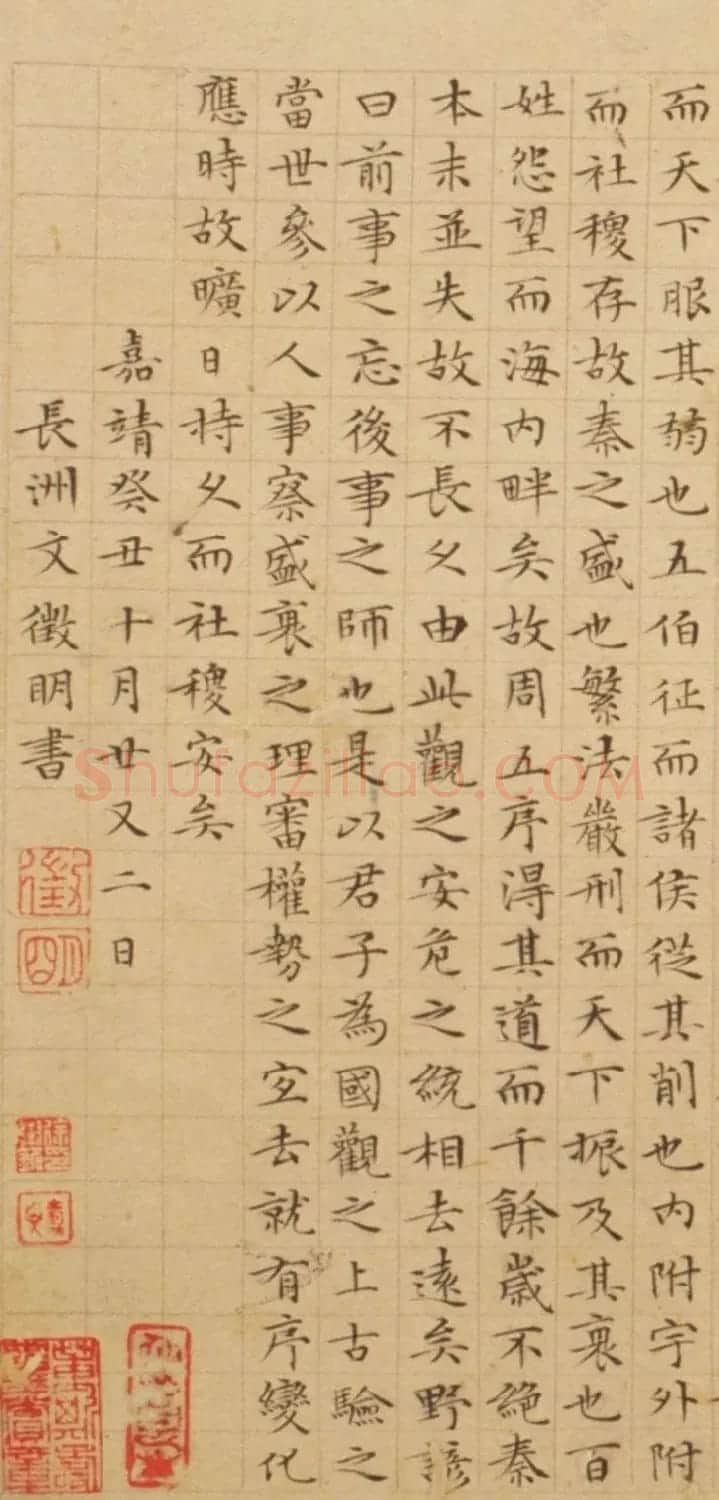 而天下服其弱也五伯征而諸侯從其削也内附守外附
而社稷存故秦之盛也繁法嚴刑而天下振及其衰也百
姓怨望而海内畔矣故周五序得其道而千餘歲不絶秦
本末並失故不長久由此觀之安危之統相去遠矣野諺
曰前事之忘後事之師也是以君子為國觀之上古驗之
當世參以人事察盛衰之理審權勢之宜去就有序變化
應時故曠日持久而社稷安矣
嘉靖癸丑十月廿又二日
長洲文徵明書
徵
明
Shufaziliao.COM